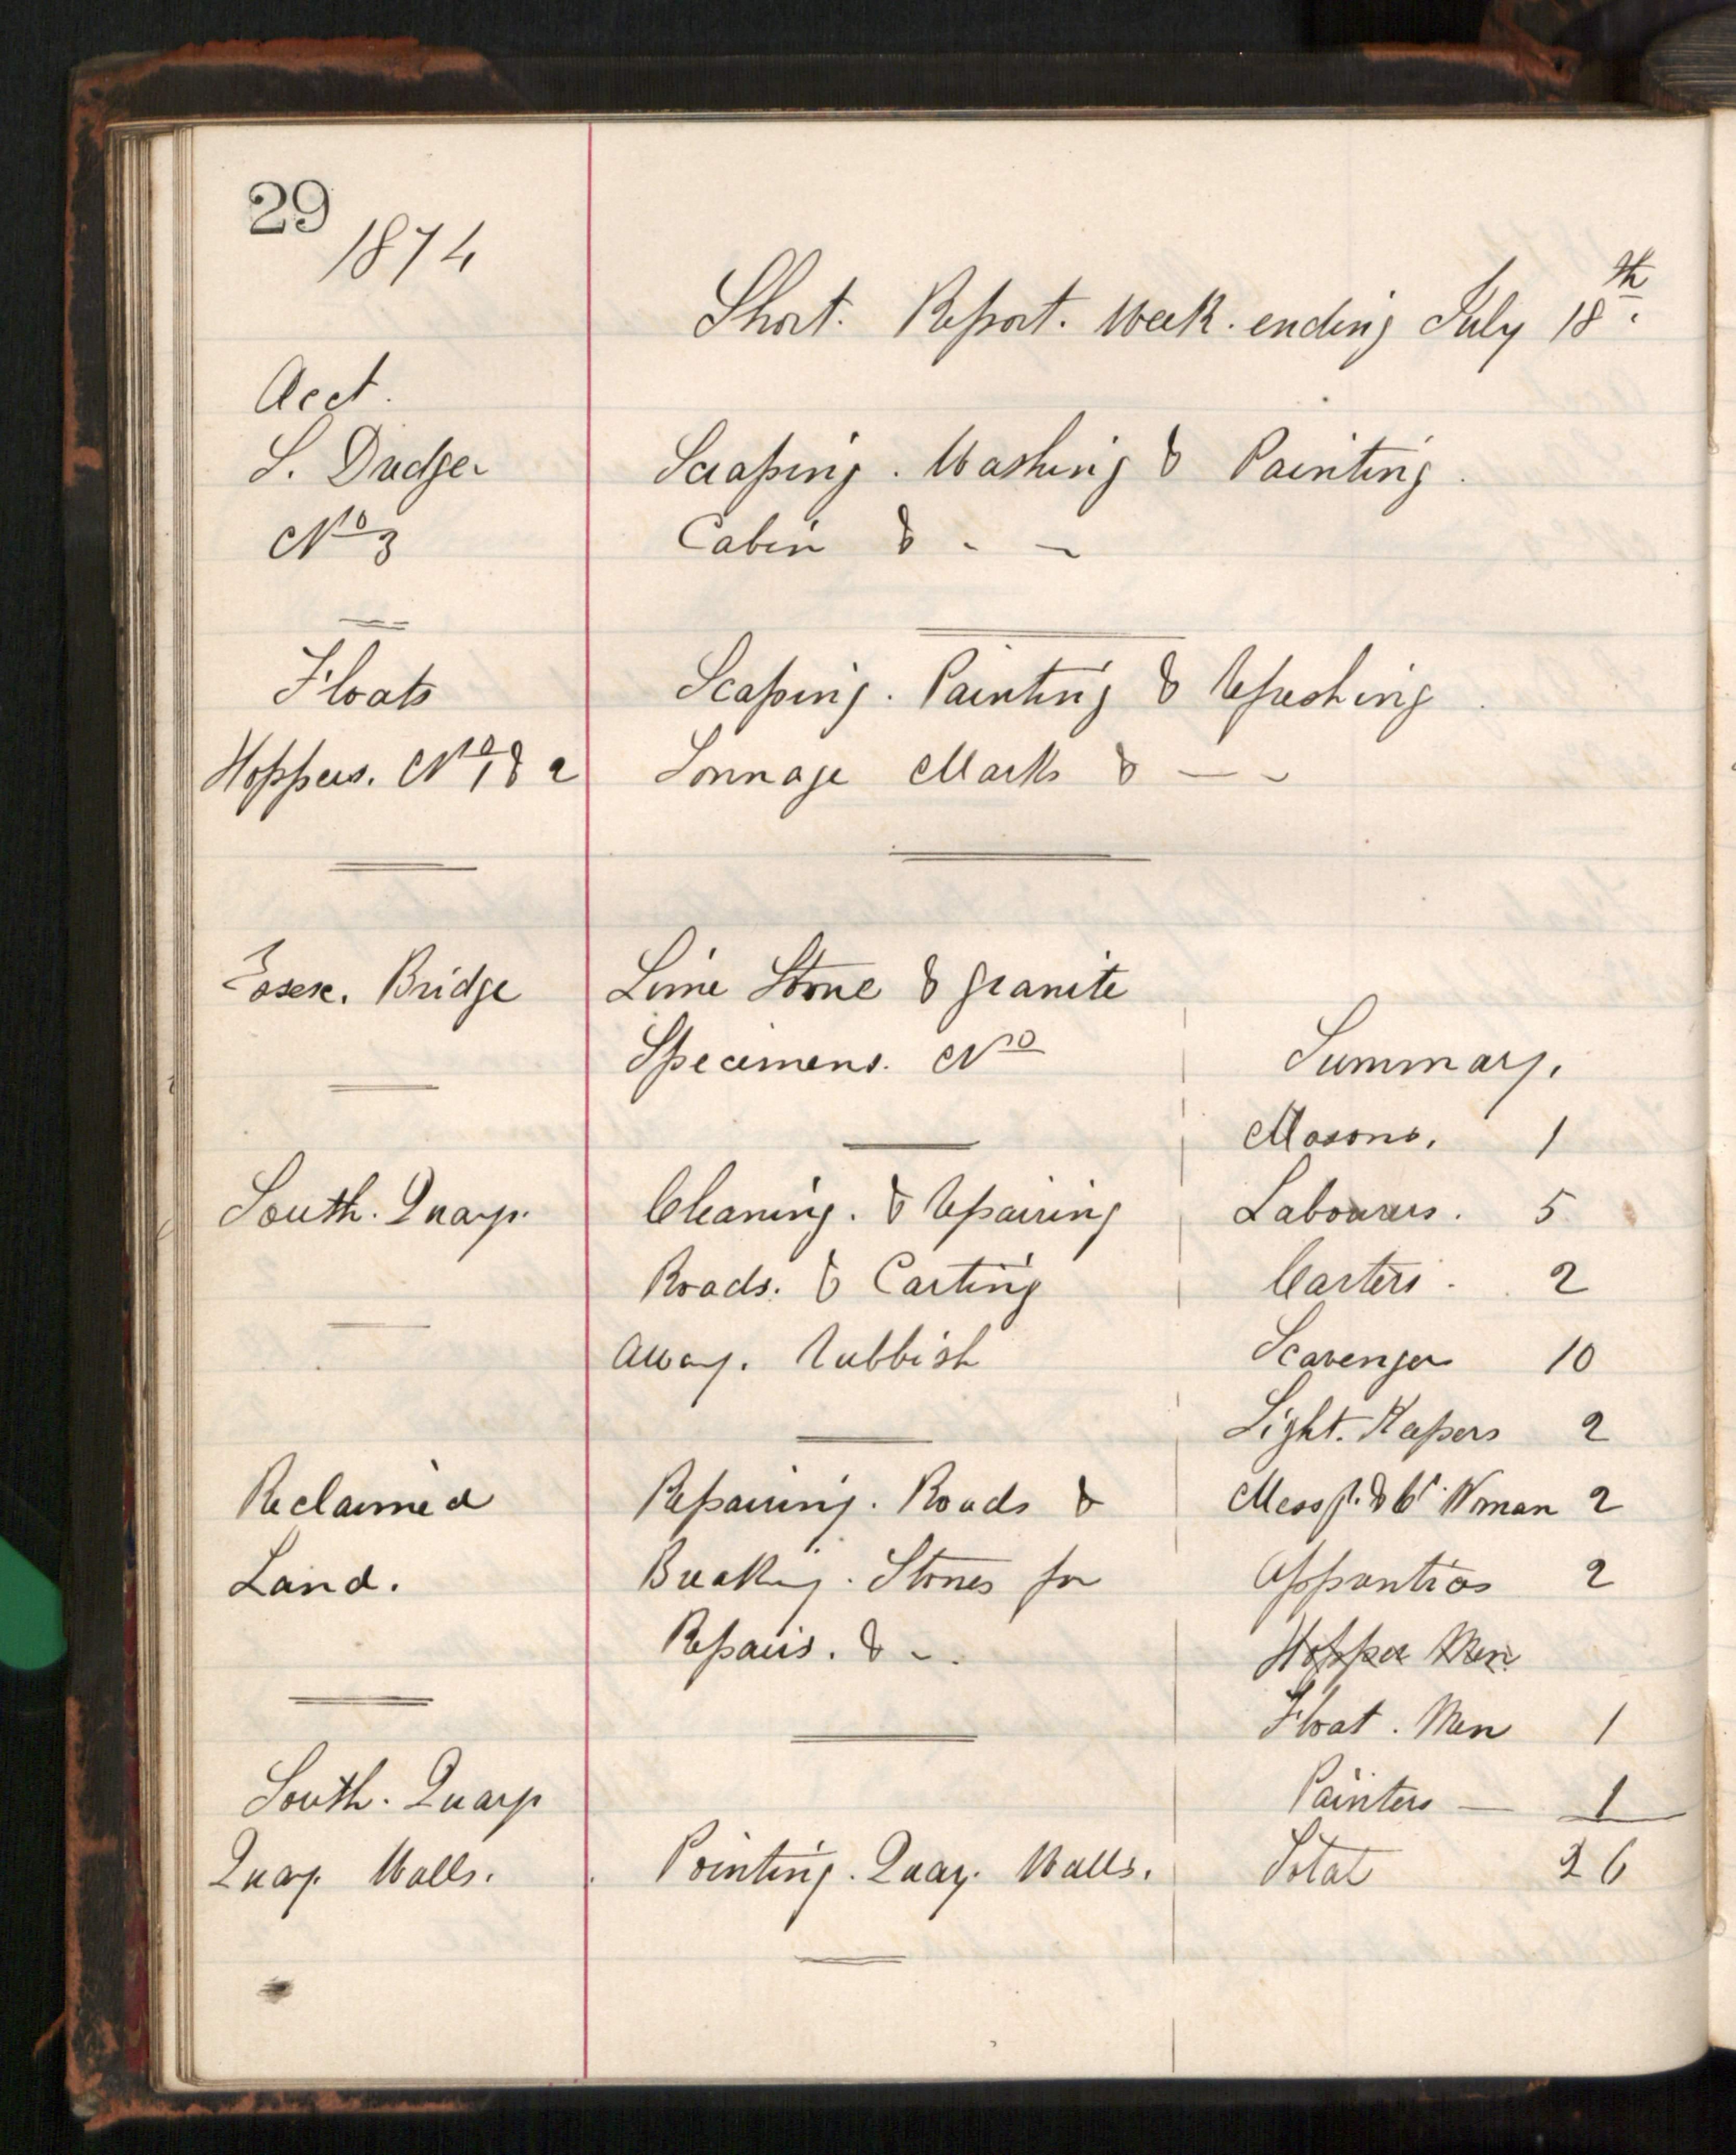 29
1874
Short. Report. Week. ending July 18th.
Acct.
S. Dredger
Scraping. Washing & Painting.
No 3
Cabin & - -
Floats
Scaping. Painting & Refreshing
Hoppers. No 1 & 2
Tonnage Marks & - -
Essex. Bridge
Lime Stone & granite
Specimens. No
South. Quay.
Cleaning. & Repairing
Roads. & Carting
Away. Rubbish
Reclaimed
Repairing. Roads &
Land.
Breaking. Stones for
Repairs. & -.
South. Quay
Quay. Walls.
Pointing. Quay. Walls.
Summary.
Masons. 1
Labourers. 5
Carters. 2
Scavenger 10
Light. Keepers 2
Messr. & Ct. Woman 2
Apprentices 2
Hopper Men
Float. Men 1
Painters — 1
Total 26